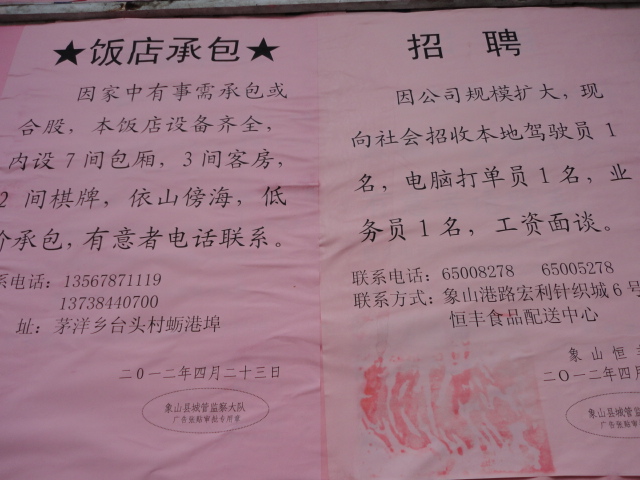 ★饭店承包★
因家中有事需承包或
合股，本饭店设备齐全，
内设7间包厢，3间客房，
2间棋牌，依山傍海，低
价承包，有意者电话联系。
系电话：13567871119
13738440700
址：茅洋乡台头村蛎港埠
二〇一二年四月二十三日
象山县城管监察大队
广告张贴审批专用章
招聘
因公司规模扩大，现
向社会招收本地驾驶员1
名，电脑打单员1名，业
务员1名，工资面谈。
联系电话：65008278 65005278
联系方式：象山港路宏利针织城6号
恒丰食品配送中心
象山恒丰
二〇一二年四月
象山县城管监
广告张贴审